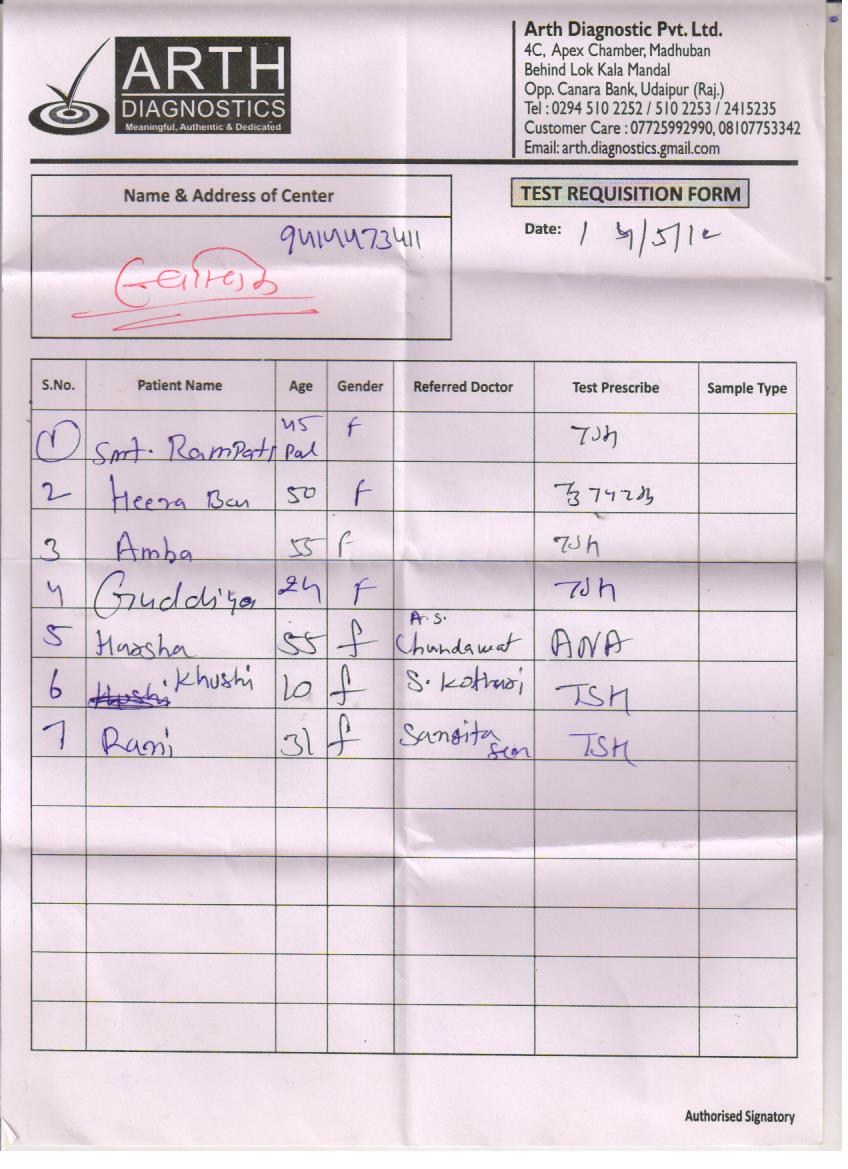 ARTH
DIAGNOSTICS
Meaningful, Authentic & Dedicated
Arth Diagnostic Pvt. Ltd.
4C, Apex Chamber, Madhuban
Behind Lok Kala Mandal
Opp. Canara Bank, Udaipur (Raj.)
Tel : 0294 510 2252 / 510 2253 / 2415235
Customer Care : 07725992990, 08107753342
Email: arth.diagnostics.gmail.com
Name & Address of Center
9414473411
TEST REQUISITION FORM
Date:
S.No. Patient Name Age Gender Referred Doctor Test Prescribe Sample Type
1 Smt. RamPati 45 F TSH
2 Heera 50 F
3 Amba 55 F TSH
4 Guddiya 24 F TSH
5 Harsha 55 f A.S. Chundawat ANA
6 Khushi 10 f S. Kothari TSH
7 Rani 31 f Sangita Sen TSH
Authorised Signatory